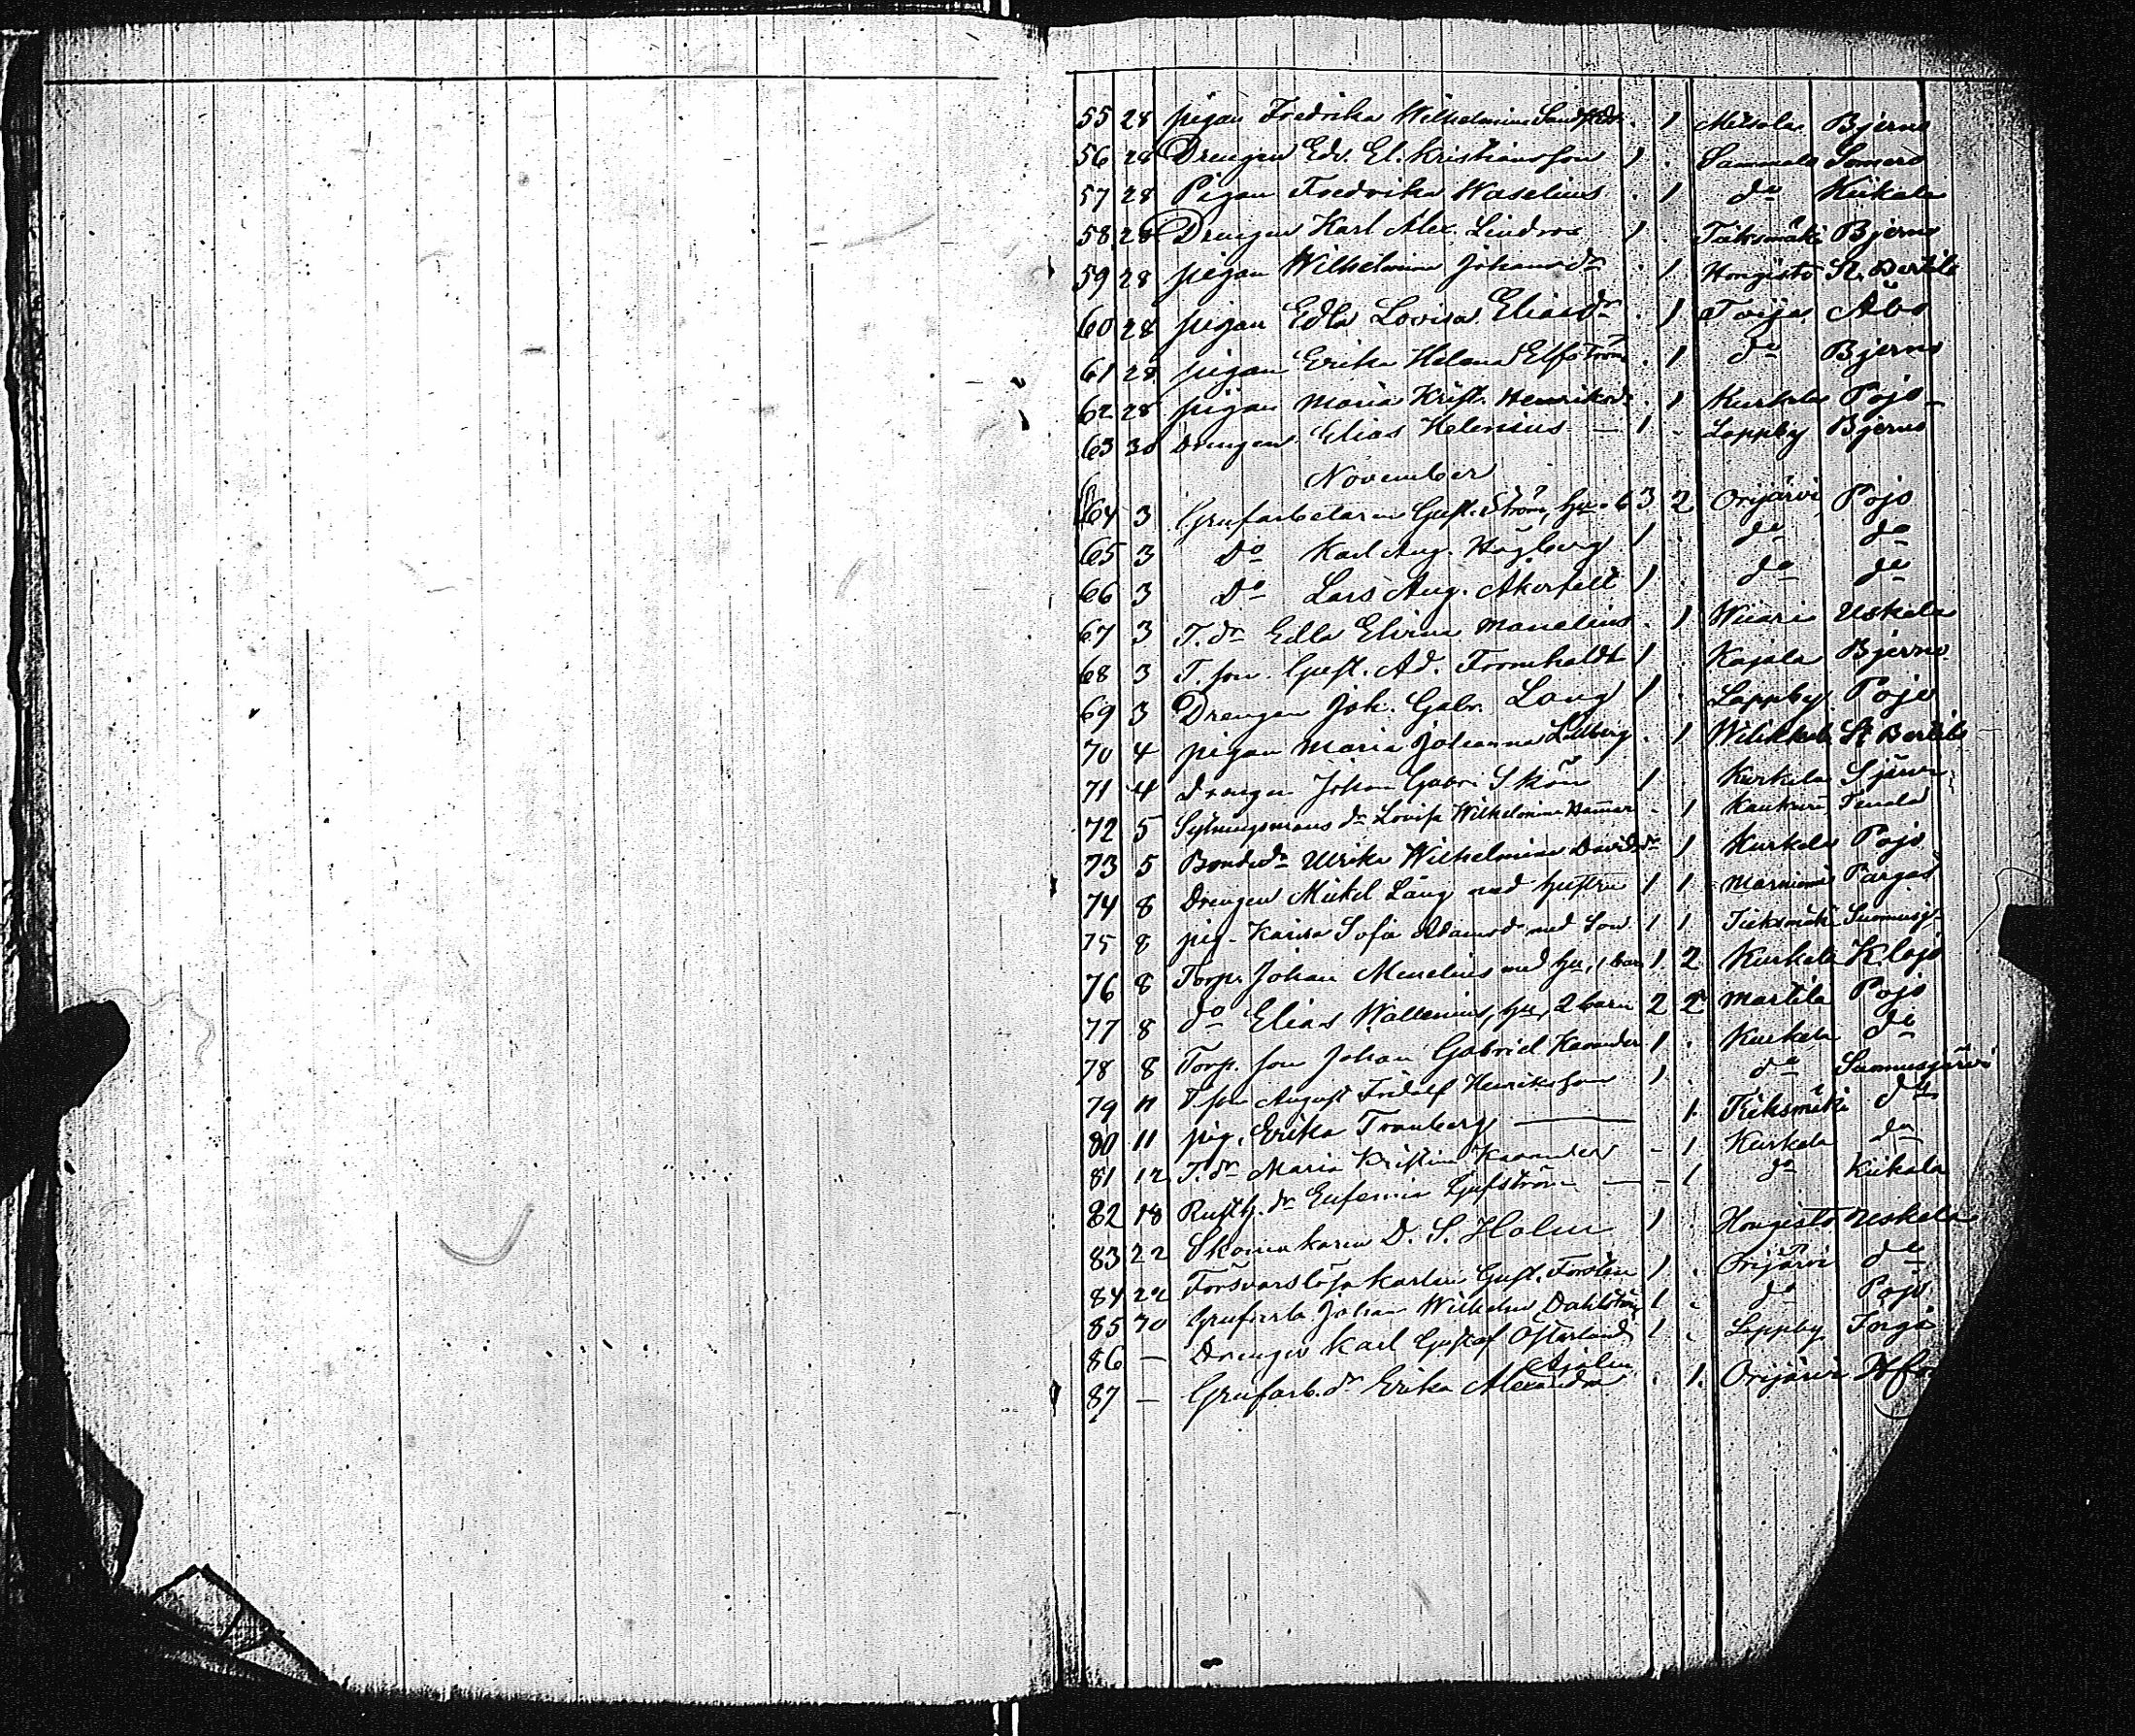 55 28 pigan Fredrika Wilhelmina . 1 Bjerno
56 28 Drengen Edv. El. Kristiansson 1 . Sammalo Somero
57 28 Pigan Fredrika Waselius . 1 do Kiikala
58 28 Drengen Karl Alex. Lindros 1 . Bjerno
59 28 pigan Wilhelmina Johansdr . 1 Hongisto St. Bertils
60 28 pigan Edla Lovisa Eliasdr . 1 Toija Åbo
61 28 pigan Erika Helena Elfström . 1 do Bjerno
62 28 pigan Maria Krist. Henriksdr . 1 Kurkela Pojo
63 30 Drengen Elias Helenius — 1 . Leppby Bjerno
November
64 3 Grufarbetaren Gust. Ström, hu. 6 3 2 Orijärvi Pojo
65 3 Do Karl Aug. Högberg 1 . do do
66 3 Do Lars Aug. Åkerfelt 1 . do do
67 3 T. dr Edla Elvira Manelius . 1 Wiiari Uskela
68 3 T. son Gust. Ad. Fromholdt 1 . Kajala Bjerno
69 3 Drengen Joh. Gabr. Lång 1 . Leppby Pojo
70 4 pigan Maria Johanna . 1 St Bertils
71 4 Drengen Johan Gabr. Skön 1 . Kurkela
72 5 Sytningsmans dr Lovisa Wilhelmina . 1 Tenala
73 5 Bondedr Ulrika Wilhelmina Davidsdr 1 Kurkela Pojo
74 8 Drengen Mickel Lång med hustru 1 1 Pargas
75 8 pig. Karisa Sofia Adamsdr med son 1 1
76 8 Torp. Johan med hu, 1 barn 1 2 Kurkela K. Lojo
77 8 do Elias Wallenius, hu, 2 barn 2 2 Martila Pojo
78 8 Torp. son Johan Gabriel Kavander 1 . Kurkela do
79 11 T son August Fridolf Henriksson 1 . do Suomusjärvi
80 11 pig. Erika Tranberg — 1. do
81 12 T. dr Maria Kristina Kavander - 1 Kurkela do
82 18 Rusth. dr Eufemia — - 1 do Kiikala
83 22 Skomakaren D. S. Holm 1 . Hongisto Uskela
84 22 Försvarslösa karlen Gust. Forsten 1 . Orijärvi do
85 30 Grufarb. Johan Wilhelm Dahlström 1 . do Pojo
86 — Drengen Karl Gustaf Österlund 1 . Leppby Ingå
87 — Grufarb. dr Erika Alexandra . 1. Orijärvi